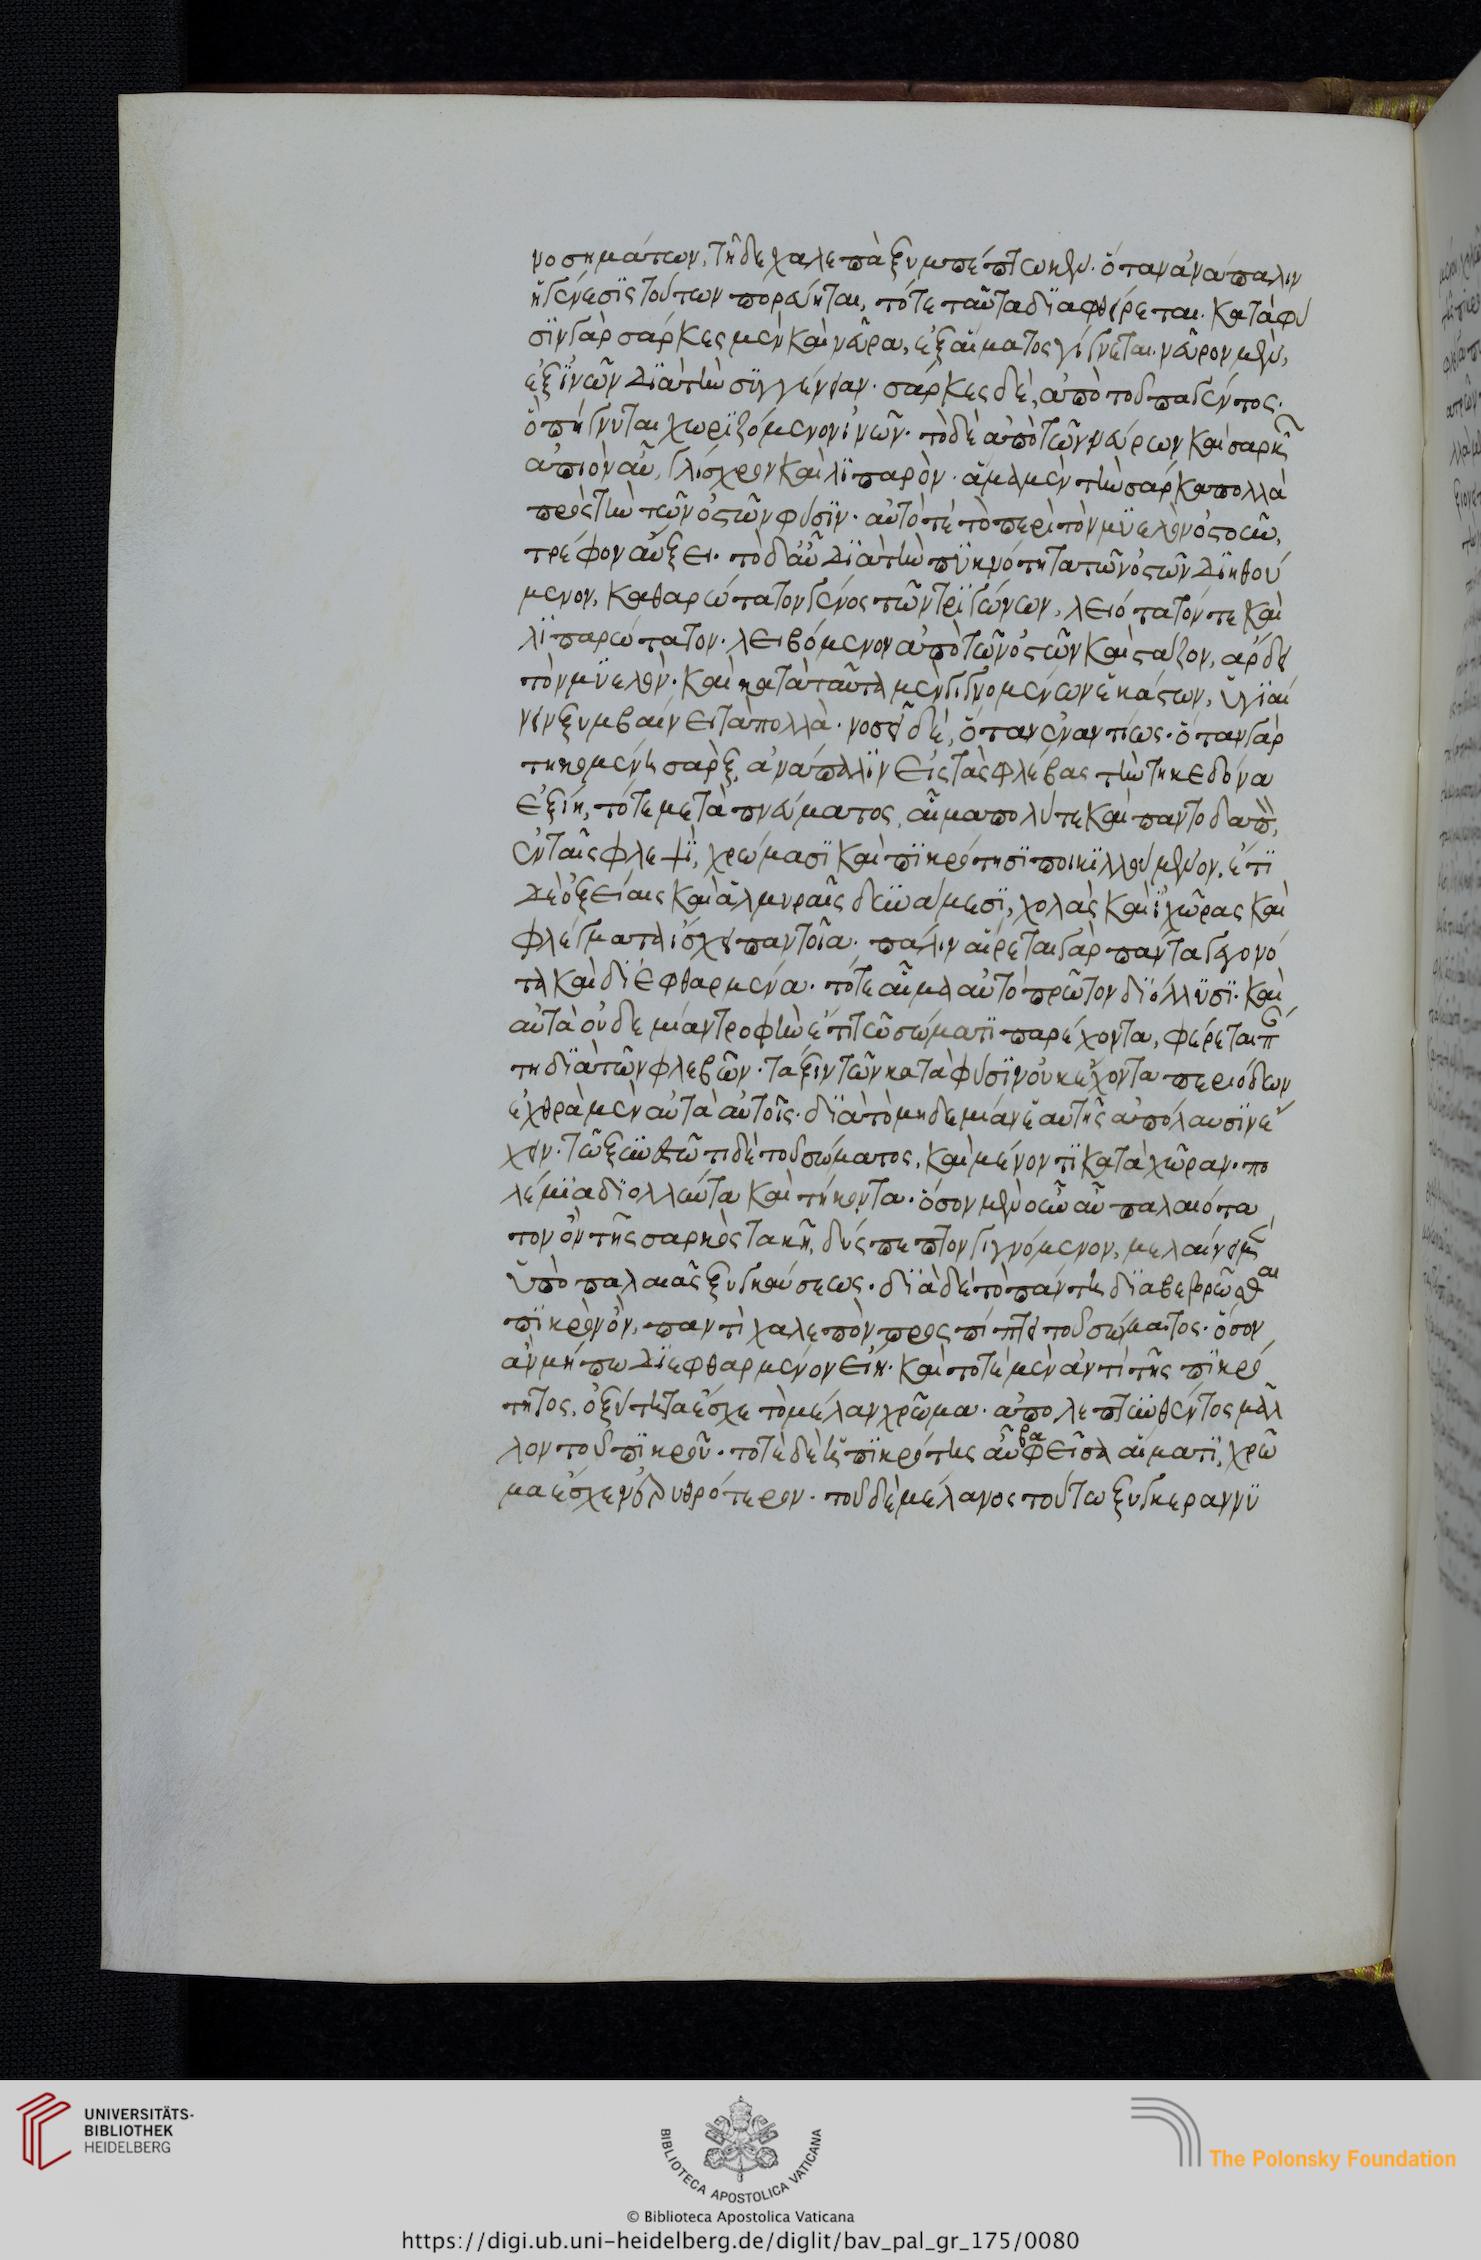 νοσημάτων, τῆδε χαλεπὰ ξυμπέπτωκεν· ὅταν ἀνάπαλιν
ἡ γένεσις τούτων πορεύηται, τότε ταῦτα διαφθείρεται. κατὰ φύ
σιν γὰρ σάρκες μὲν καὶ νεῦρα, ἐξ αἵματος γίγνεται. νεῦρον μὲν,
ἐξ ἰνῶν διὰ τὴν συγγένειαν. σάρκες δὲ, ἀπὸ τοῦ παγέντος.
ὃ πήγνυται χωριζόμενον ἰνῶν. τὸ δὲ ἀπὸ τῶν νεύρων καὶ σαρκῶν
ἀπιὸν αὖ, γλίσχρον καὶ λιπαρὸν. ἅμα μὲν τὴν σάρκα πολλὰ
πρὸς τὴν τῶν ὀστῶν φύσιν. αὐτό τε τὸ περὶ τὸν μυελὸν ὀστοῦν,
τρέφον αὔξει. τὸ δ' αὖ διὰ τὴν πυκνότητα τῶν ὀστῶν διηθού
μενον, καθαρώτατον γένος τῶν τριγώνων, λειότατόν τε καὶ
λιπαρώτατον. λειβόμενον ἀπὸ τῶν ὀστῶν καὶ στάζον, ἄρδει
τὸν μυελὸν. καὶ κατὰ ταῦτα μὲν γιγνομένων ἑκάστων, ὑγιαί
νειν ξυμβαίνει τὰ πολλὰ. νοσεῖ δὲ, ὅταν ἐναντίως. ὅταν γὰρ
τηκομένη σὰρξ, ἀνάπαλιν εἰς τὰς φλέβας τὴν τηκεδόνα
ἐξίη, τότε μετὰ πνεύματος, αἷμα πολύ τε καὶ παντοδαπὸν,
ἐν ταῖς φλεψὶ, χρώμασι καὶ πικρότησι ποικιλλούμενον, ἔτι
δὲ ὀξείαις καὶ ἁλμυραῖς δυνάμεσι, χολὰς καὶ ἰχῶρας καὶ
φλέγματα ἴσχει παντοῖα. παλιναίρετα γὰρ πάντα γεγονό
τα καὶ διεφθαρμένα. τότε αἷμα αὐτὸ πρῶτον διόλλυσι. καὶ
αὐτὰ οὐδεμίαν τροφὴν ἔτι τῶ σώματι παρέχοντα, φέρεται πάν
τη διὰ τῶν φλεβῶν. τάξιν τῶν κατὰ φύσιν οὐκ ἔχοντα περιόδων
ἐχθρὰ μὲν αὐτὰ αὑτοῖς. διὰ τὸ μηδεμίαν ἑαυτῆς ἀπόλαυσιν ἔ
χειν. τῶ ξυνεστῶτι δὲ τοῦ σώματος, καὶ μένοντι κατὰ χῶραν. πο
λέμια διολλῦντα καὶ τήκοντα. ὅσον μὲν οὖν αὖ παλαιότα
τον ὂν τῆς σαρκὸς τακῆ, δύσπεπτον γιγνόμενον, μελαίνει μὲν
ὑπὸ παλαιᾶς ξυγκαύσεως. διὰ δὲ τὸ πάντη διαβεβρῶσθαι
πικρὸν ὂν, παντὶ χαλεπὸν προσπίπτει τοῦ σώματος. ὅσον
ἂν μήπω διεφθαρμένον εἴη. καὶ τοτὲ μὲν ἀντὶ τῆς πικρό
τητος, ὀξύτητα ἔσχε τὸ μέλαν χρῶμα. ἀπολεπτυνθέντος μᾶλ
λον τοῦ πικροῦ. τοτὲ δὲ ἡ πικρότης αὖ βαφεῖσα αἵματι, χρῶ
μα ἔσχεν ἐρυθρότερον. τοῦ δὲ μέλανος τούτω ξυγκεραννυ
UNIVERSITÄTS-
BIBLIOTHEK
HEIDELBERG
BIBLIOTECA APOSTOLICA VATICANA
The Polonsky Foundation
© Biblioteca Apostolica Vaticana
https://digi.ub.uni-heidelberg.de/diglit/bav_pal_gr_175/0080